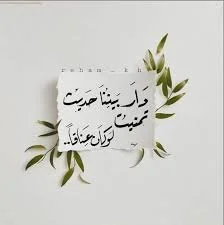 reham _ kh
دار بيننا حديث
تمنيت
لو كان عناقاً..